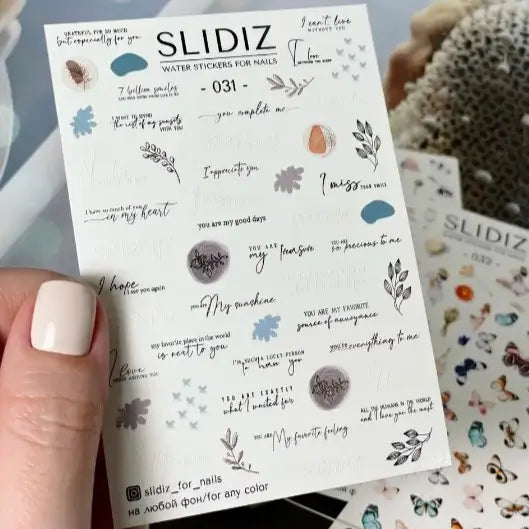 GRATEFUL FOR SO MUCH
but especially for you
SLIDIZ
WATER STICKERS FOR NAILS
- 031 -
I can't live
WITHOUT YOU
I love
7 billion smiles
the rest of my sunsets
WITH YOU
you complete me
I appreciate you
I miss YOUR SMILE
I have so much of you
in my heart
you are my good days
YOU ARE
my Treasure
YOU ARE
so precious to me
I hope
I see you again
you are My sunshine
YOU ARE MY FAVORITE
source of annoyance
my favorite place in the world
is next to you
you're everything to me
I'M SUCH A LUCKY PERSON
to have you
I love
BEING AROUND YOU
YOU ARE EXACTLY
what I waited for
ALL THE HUMANS IN THE WORLD,
and I love you the most
YOU ARE My favorite feeling
slidiz_for_nails
на любой фон/for any color
SLIDIZ
WATER STICKERS FOR NAILS